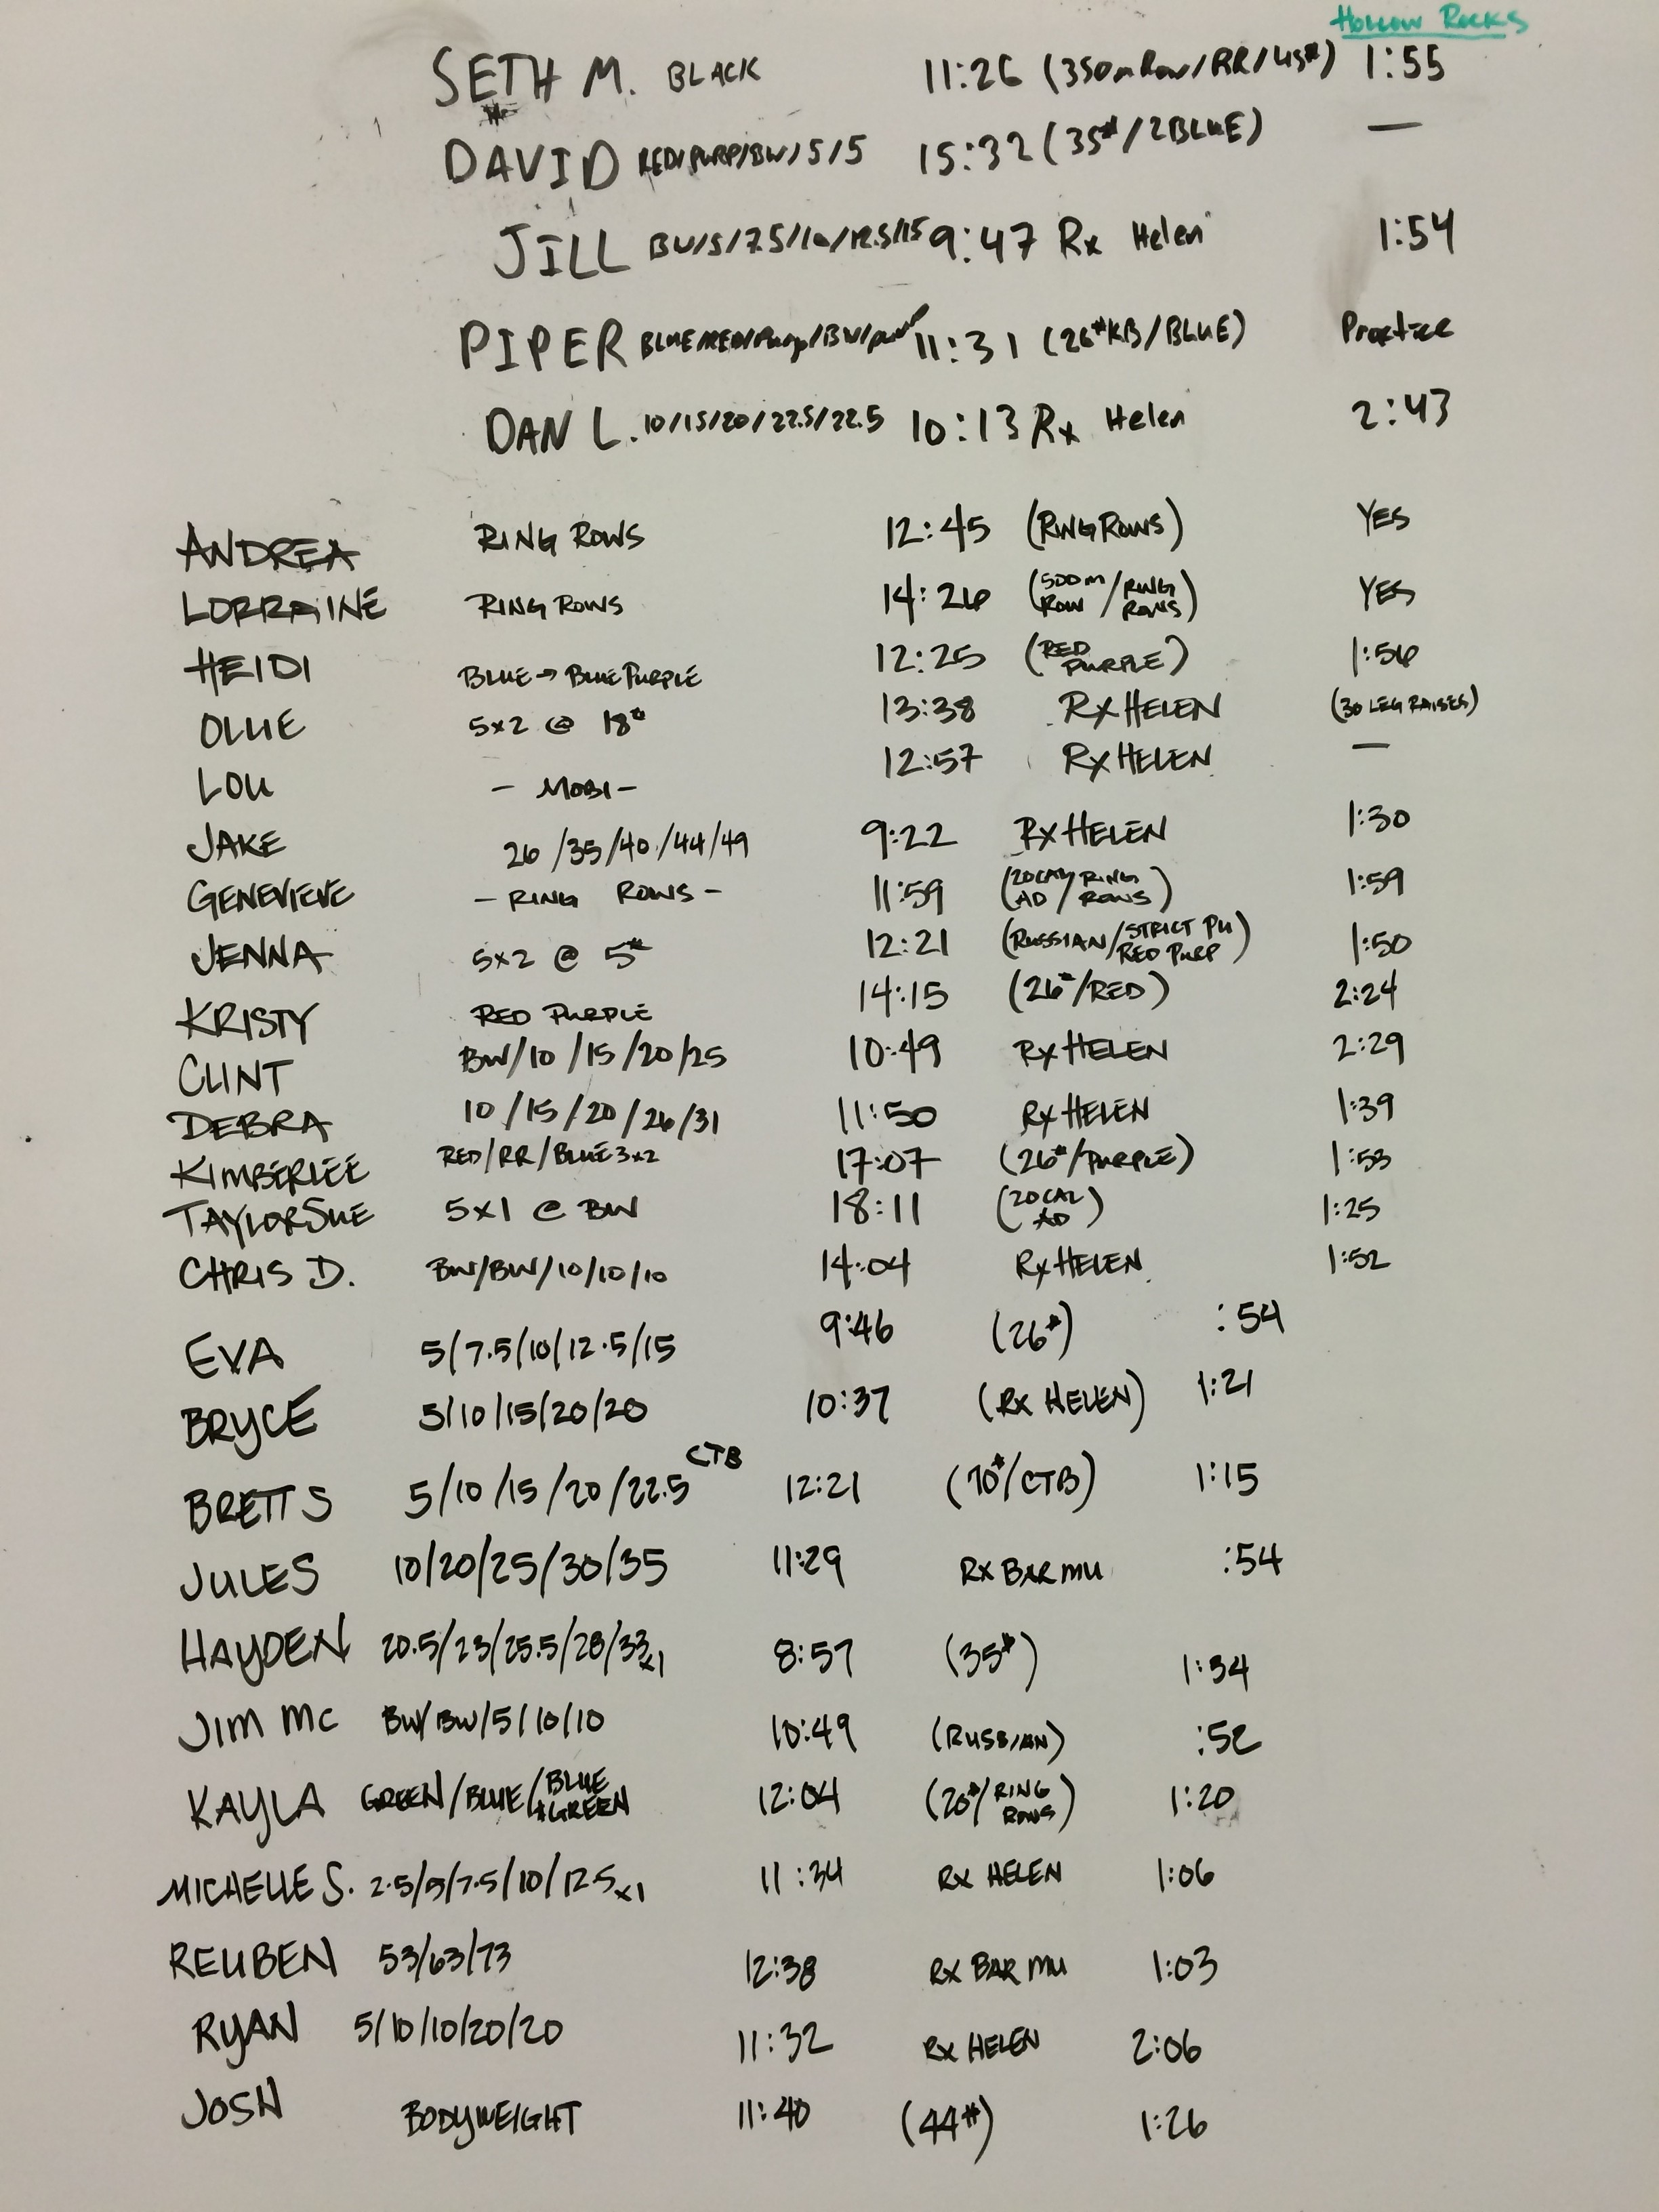 HOLLOW ROCKS
SETH M. BLACK 11:26 (350m Row/RR/45#) 1:55
DAVID RED/PURP/BW/5/5 15:32 (35#/2BLUE) —
JILL BW/5/7.5/10/12.5/15 9:47 Rx Helen 1:54
PIPER BLUE/RED/Purp/BW/purp 11:31 (26#KB/BLUE) Practice
DAN L. 10/15/20/22.5/22.5 10:13 Rx Helen 2:43
ANDREA RING ROWS 12:45 (RING ROWS) YES
LORRAINE RING ROWS 14:26 (500m ROW/RING ROWS) YES
HEIDI BLUE→BLUE PURPLE 12:25 (RED PURPLE) 1:56
OLLIE 5x2 @ 18# 13:38 RX HELEN (30 LEG RAISES)
LOU - MOBI - 12:57 RX HELEN —
JAKE 26/35/40/44/49 9:22 RX HELEN 1:30
GENEVIEVE - RING ROWS - 11:59 (20CAL AD/RING ROWS) 1:59
JENNA 5x2 @ 5# 12:21 (RUSSIAN/STRICT PU RED PURP) 1:50
KRISTY RED PURPLE 14:15 (26#/RED) 2:24
CLINT BW/10/15/20/25 10:49 RX HELEN 2:29
DEBRA 10/15/20/26/31 11:50 RX HELEN 1:39
KIMBERLEE RED/RR/BLUE 3x2 17:07 (26#/PURPLE) 1:53
TAYLORSUE 5x1 @ BW 18:11 (20CAL AD) 1:25
CHRIS D. BW/BW/10/10/10 14:04 RX HELEN 1:52
EVA 5/7.5/10/12.5/15 9:46 (26#) :54
BRYCE 5/10/15/20/20 10:37 (RX HELEN) 1:21
BRETT S 5/10/15/20/22.5 CTB 12:21 (70#/CTB) 1:15
JULES 10/20/25/30/35 11:29 RX BAR MU :54
HAYDEN 20.5/23/25.5/28/33x1 8:57 (35#) 1:34
JIM MC BW/BW/5/10/10 10:49 (RUSSIAN) :52
KAYLA GREEN/BLUE/BLUE +GREEN 12:04 (20#/RING ROWS) 1:20
MICHELLE S. 2.5/5/7.5/10/12.5x1 11:34 RX HELEN 1:06
REUBEN 53/63/73 12:38 RX BAR MU 1:03
RYAN 5/10/10/20/20 11:32 RX HELEN 2:06
JOSH BODYWEIGHT 11:40 (44#) 1:26